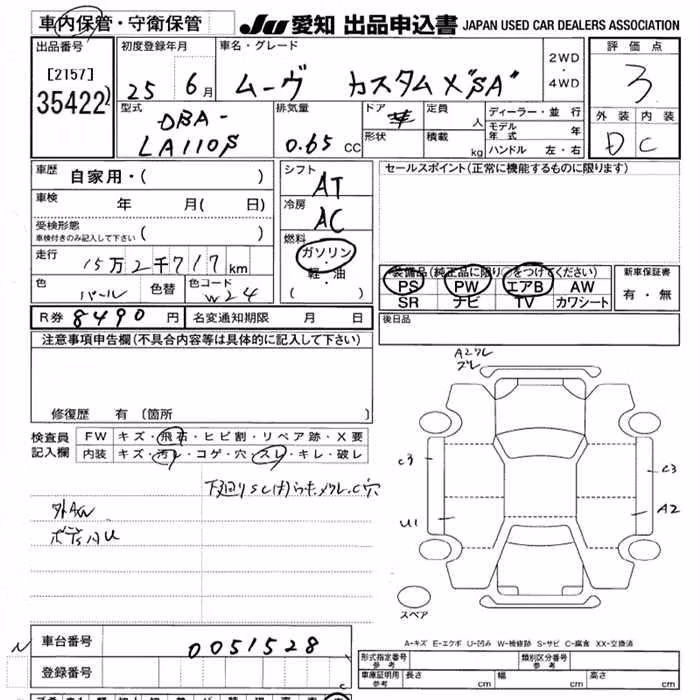 車内保管・守衛保管
JU 愛知 出品申込書 JAPAN USED CAR DEALERS ASSOCIATION
出品番号 初度登録年月 車名・グレード 評価点
[2157] 25 6月 ムーヴ カスタムX"SA" 2WD・4WD 3
35422
型式 排気量 ドア 定員 人 ディーラー・並行 外装 内装
DBA-
LA110S 0.65 CC 形状 積載 kg モデル年式 年 D C
ハンドル 左・右
車歴 自家用・( ) シフト AT セールスポイント(正常に機能するものに限ります)
車検 年 月( 日) 冷房 AC
受検形態
車検付きのみ記入して下さい ( )
燃料 ガソリン・軽・油 ( )
走行 15万2千717km
色 パール 色替 色コード W24
装備品(純正品に限り○をつけてください) 新車保証書
PS PW エアB AW 有・無
SR ナビ TV カワシート
R券 8490 円 名変通知期限 月 日 後日品
注意事項申告欄(不具合内容等は具体的に記入して下さい)
修復歴 有 〔箇所 〕
検査員記入欄 FW キズ・飛石・ヒビ割・リペア跡・X要
内装 キズ・汚レ・コゲ・穴・スレ・キレ・破レ
外AW
ボディAU
A2ワレ
ズレ
C3 C3
U1 A2
スペア
A-キズ E-エクボ U-凹み W-補修跡 S-サビ C-腐食 XX-交換済
車台番号 0051528
登録番号
型式指定番号 参考 類別区分番号 参考
車庫証明用 参考 長さ cm 幅 cm 高さ cm